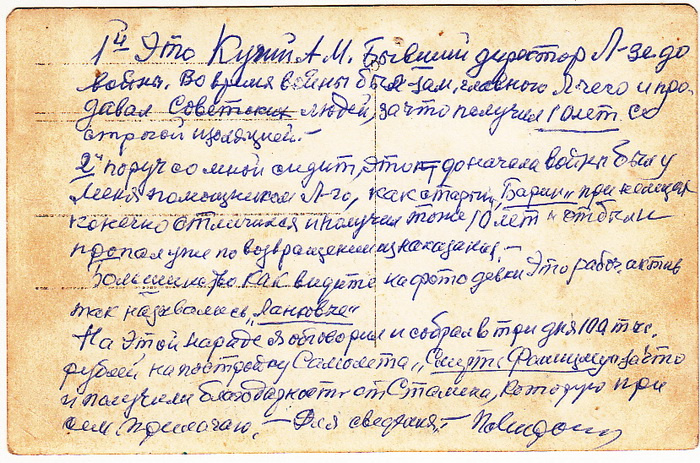 1й Это Кузин А М. Бывший директор Л-за до
войны. Во время войны был зам, главного Л-чего и про-
давал Советских людей, за что получил 10 лет со
строгой изоляцией.-
2й поруч со мной сидит, Это до начала войны был у
меня помощником Л-го, как старый, "Барин" при
конечно отличался и получил тоже 10 лет отбыли
пропали уже по возвращении из наказания,-
Большинство как видите на фото девки Это рабоч. актив
так называлась "Ланковые"
На Этой нараде я обговорил и собрал в три дня 100 тыс.
рублей на постройку Самолета "Смерть Фашизму" за что
и получили благодарность от Сталина, которую при
сем прилагаю,- Для сведения,-